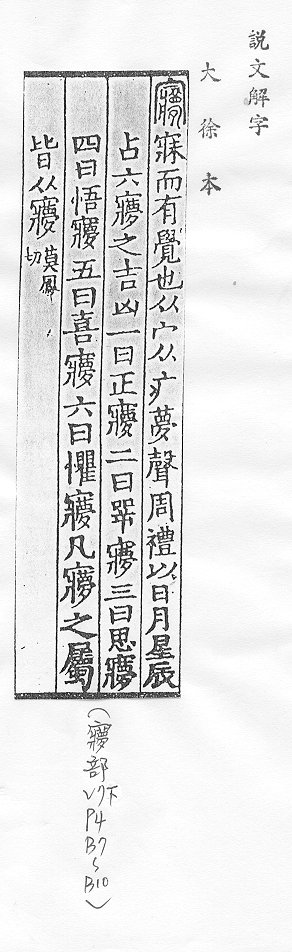 說文解字
大徐本
㝱寐而有覺也从宀从疒夢聲周禮以日月星辰
占六㝱之吉凶一曰正㝱二曰㖾㝱三曰思㝱
四曰悟㝱五曰喜㝱六曰懼㝱凡㝱之屬
皆从㝱莫鳳切
(㝱部V7下P4B7~B10)